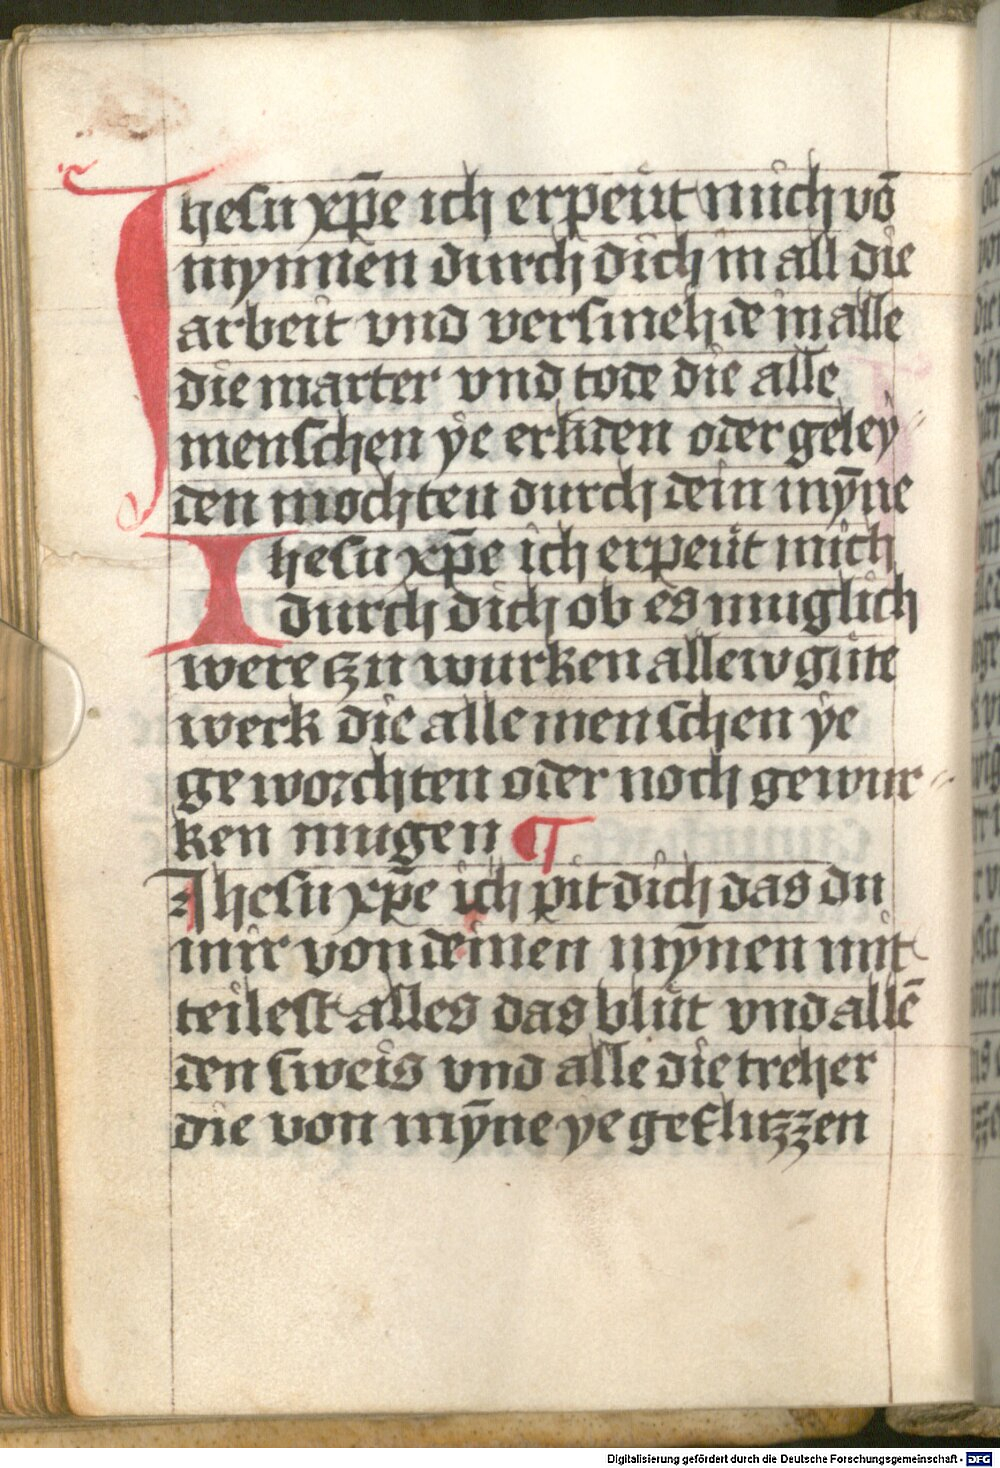 Ihesu xp̄e ich erpeüt mich vō
mynnen durch dich in all die
arbeit vnd versmehde in alle
die marter vnd tode die alle
menschen ye erliden oder geley〃
den mochten durch dein mȳne
Ihesu xp̄e ich erpeüt mich
durch dich ob es muglich
were tzu wurken allew güte
werk die alle menschen ye
geworchten oder noch gewur〃
ken mugen ¶
Ihesu xp̄e ich pit dich das du
mir von deinen mȳnen mit
teilest alles das blüt vnd allē
den sweis vnd alle die treher
die von mȳne ye geflutzzen
Digitalisierung gefördert durch die Deutsche Forschungsgemeinschaft - DFG